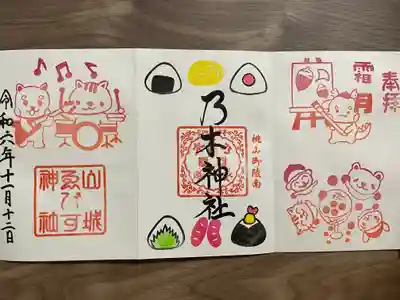 奉拝
霜月
桃山御陵南
乃木神社
山城
ゑびす
神社
令和六年十一月十二日